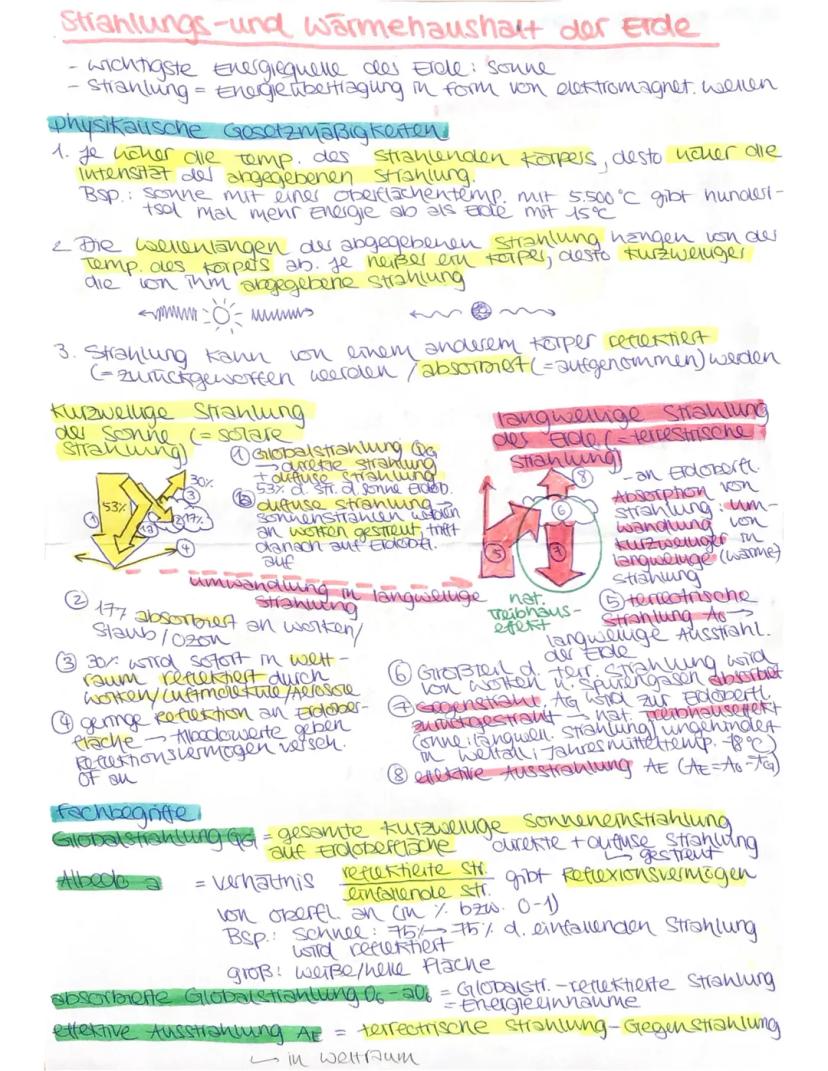 Strahlungs- und Wärmehaushalt der Erde
- wichtigste Energiequelle der Erde: Sonne
- Strahlung = Energieübertragung in Form von elektromagnet. Wellen
physikalische Gesetzmäßigkeiten
1. Je höher die Temp. des strahlenden Körpers, desto höher die
Intensität der abgegebenen Strahlung.
Bsp.: Sonne mit einer Oberflächentemp. mit 5.500°C gibt hundert-
tsd mal mehr Energie ab als Erde mit 15°C
2. Die Wellenlängen der abgegebenen Strahlung hängen von der
Temp. des Körpers ab. Je heißer ein Körper, desto kurzwelliger
die von ihm abgegebene Strahlung
3. Strahlung kann von einem anderem Körper reflektiert
(= zurückgeworfen werden / absorbiert (= aufgenommen) werden
kurzwellige Strahlung
der Sonne (= solare
Strahlung)
53%
30%
17%
1
2
3
4
1a
① Globalstrahlung QG
→ direkte Strahlung
+ diffuse Strahlung
53% d. Str. d. Sonne Erdob.
ⓑ diffuse Strahlung →
Sonnenstrahlen werden
an Wolken gestreut, trifft
danach auf Erdobfl.
auf
langwellige Strahlung
der Erde (= terrestrische
Strahlung)
5
6
7
8
nat.
Treibhaus-
effekt
- an Erdoberfl.
Absorption von
Strahlung: Um-
wandlung von
kurzwelliger in
langwellige (Wärme)
Strahlung
Umwandlung in langwellige
Strahlung
② 17% absorbiert an Wolken/
Staub/Ozon
③ 30% wird sofort in Welt-
raum reflektiert durch
Wolken/Luftmoleküle/Aerosole
④ geringe Reflektion an Erdober-
fläche → Albedowerte geben
Reflektionsvermögen versch.
Of an
⑤ terrestrische
Strahlung AO →
langwellige Ausstrahl.
der Erde
⑥ Großteil d. terr. Strahlung wird
von Wolken u. Spurengasen absorbiert
⑦ Gegenstrahl. AG wird zur Erdoberfl.
zurückgestrahlt → nat. Treibhauseffekt
(ohne: langwell. Strahlung ungehindert
in Weltall; Jahresmitteltemp. -18°C)
⑧ effektive Ausstrahlung AE (AE=AO-AG)
Fachbegriffe
Globalstrahlung QG = gesamte kurzwellige Sonneneinstrahlung
auf Erdoberfläche direkte + diffuse Strahlung
↳ gestreut
Albedo a = Verhältnis reflektierte Str. / einfallende Str. gibt Reflexionsvermögen
von Oberfl. an (in % bzw. 0-1)
Bsp.: Schnee: 75% → 75% d. einfallenden Strahlung
wird reflektiert
groß: weiße/helle Fläche
absorbierte Globalstrahlung QG - aQG = Globalstr. - reflektierte Strahlung
= Energieeinnahme
effektive Ausstrahlung AE = terrestrische Strahlung - Gegenstrahlung
↳ in Weltraum